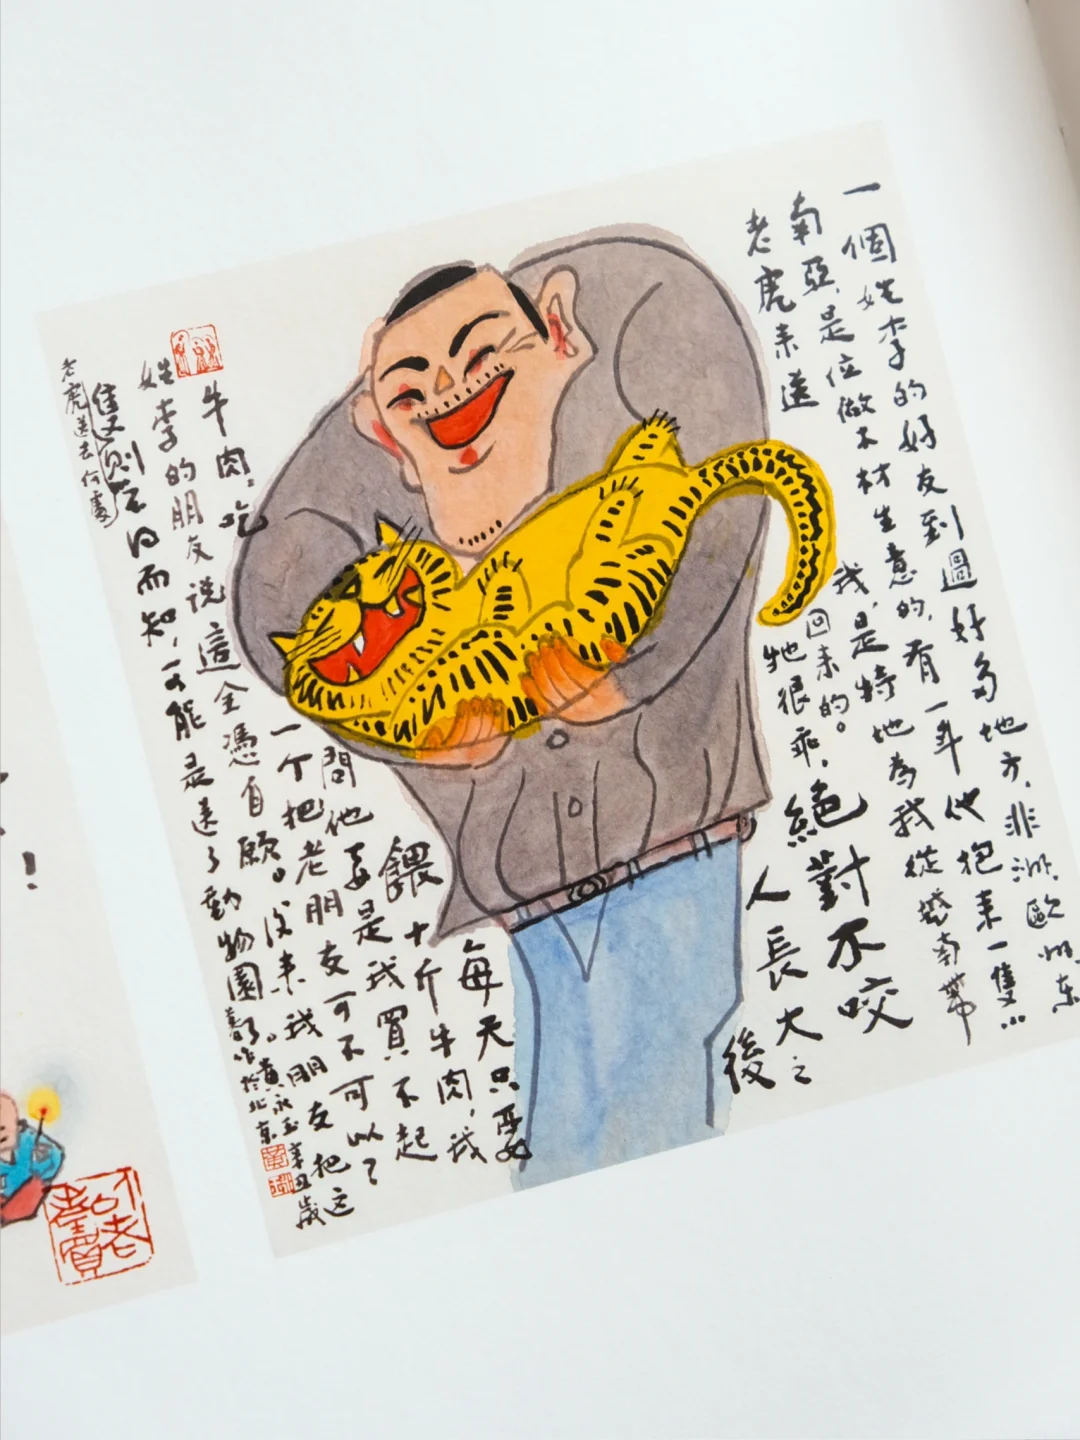 一個姓李的好友到過好多地方，非洲，歐洲，东
南亞，是位做木材生意的，有一年他抱来一隻小
老虎来送
我，是特地為我從越南带
回来的。
牠很乖，絕對不咬
人長大之
後
每天只要
餵十斤牛肉，我
問他要是我買不起
牛肉，吃
一个把老朋友可不可以？
姓李的朋友说這全憑自願。後来我朋友把这
隻
老虎送去何處
则不得而知，可能是送了動物園養了。
黄永玉辛丑歲
作於北京